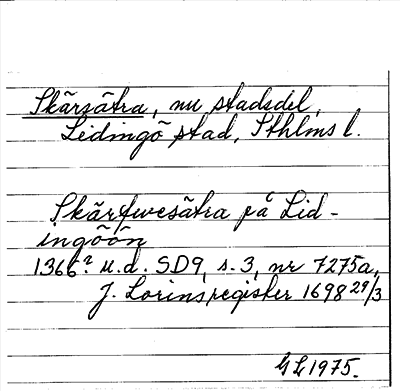 Skärsätra, nu stadsdel,
Lidingö stad, Sthlms l.
Skärfwesätra på Lid-
ingöön
1366? u.d. SD9, s. 3, nr 7275a,
J. Lorins register 1698 29/3
GL 1975.